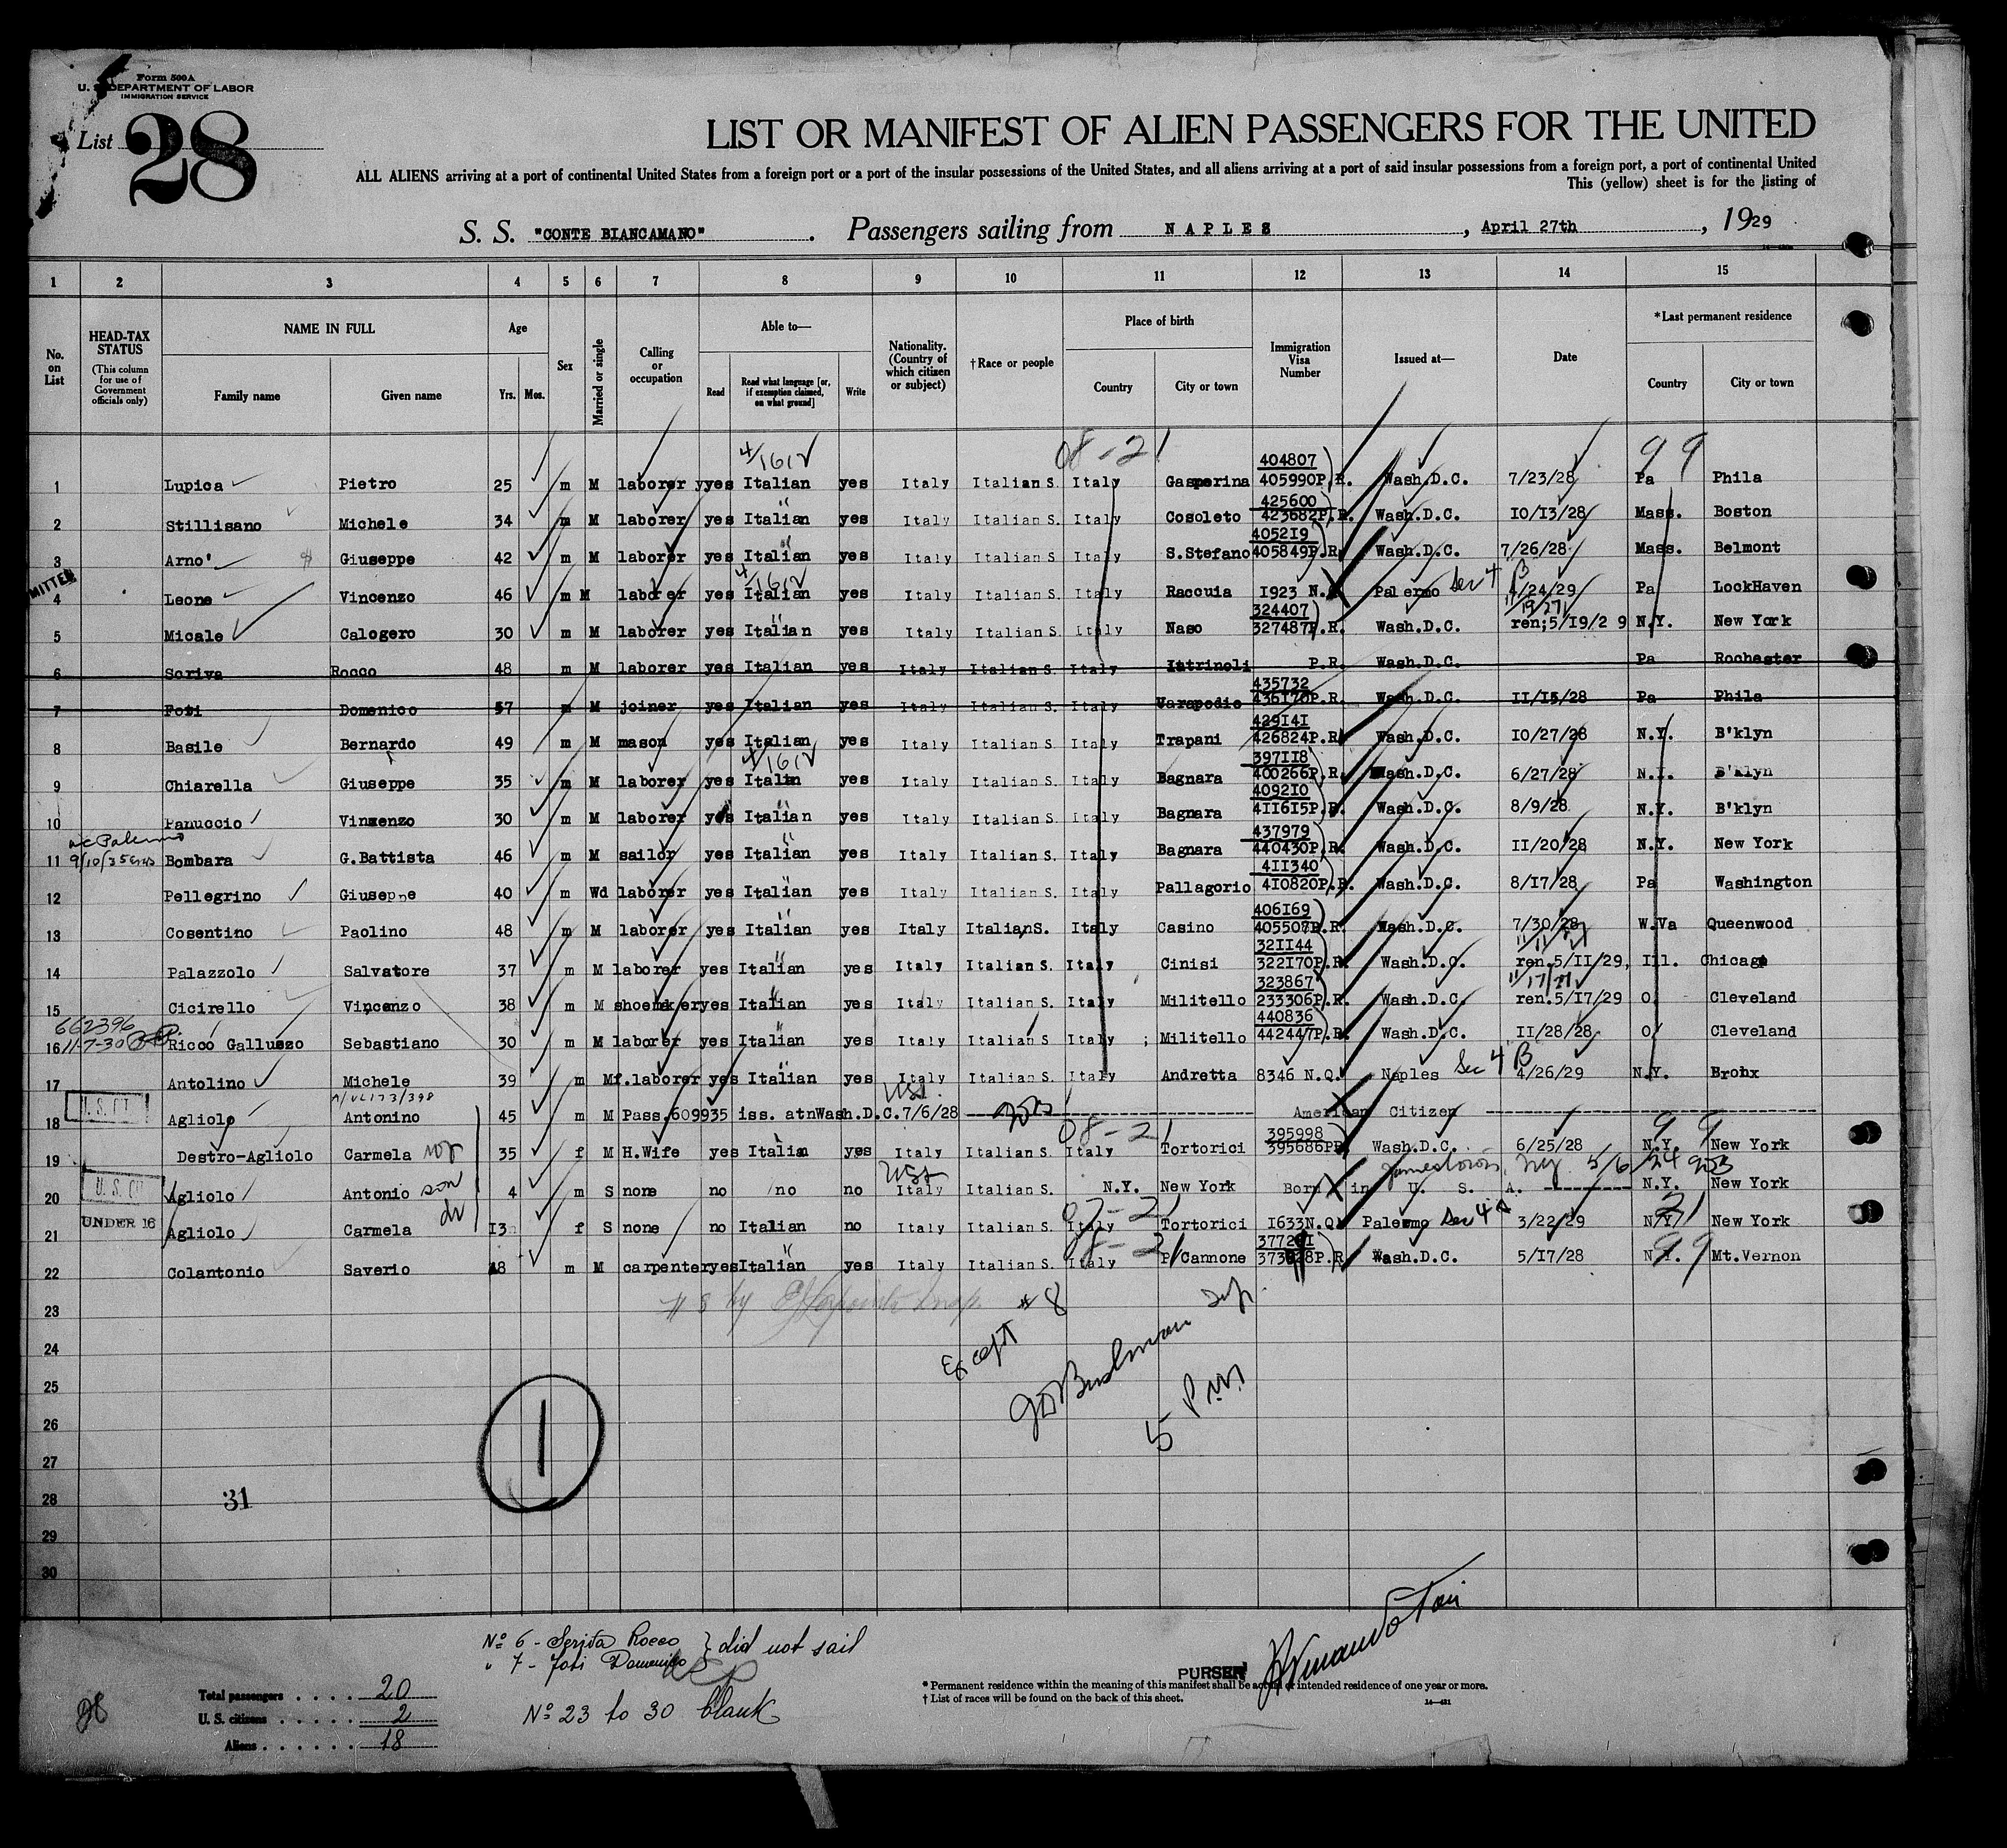 Form 500A
U. S. DEPARTMENT OF LABOR
IMMIGRATION SERVICE
List 28
LIST OR MANIFEST OF ALIEN PASSENGERS FOR THE UNITED
ALL ALIENS arriving at a port of continental United States from a foreign port or a port of the insular possessions of the United States, and all aliens arriving at a port of said insular possessions from a foreign port, a port of continental United
This (yellow) sheet is for the listing of
S. S. "CONTE BIANCAMANO" . Passengers sailing from NAPLES , April 27th , 1929
1 2 3 4 5 6 7 8 9 10 11 12 13 14 15
No. on List
HEAD-TAX STATUS (This column for use of Government officials only)
NAME IN FULL Family name Given name
Age Yrs. Mos.
Sex
Married or single
Calling or occupation
Able to— Read Read what language [or, if exemption claimed, on what ground] Write
Nationality. (Country of which citizen or subject)
†Race or people
Place of birth Country City or town
Immigration Visa Number
Issued at—
Date
*Last permanent residence Country City or town
4/1612 08-21 404807 99
1 Lupica Pietro 25 m M laborer yyes Italian yes Italy Italian S. Italy Gasperina 405990P.R. Wash.D.C. 7/23/28 Pa Phila
425600
2 Stillisano Michele 34 m M laborer yes Italian yes Italy Italian S. Italy Cosoleto 423682P.R. Wash.D.C. 10/13/28 Mass. Boston
405219
3 Arno' Giuseppe 42 m M laborer yes Italian yes Italy Italian S Italy S.Stefano 405849P.R. Wash.D.C. 7/26/28 Mass. Belmont
MITTED 4/1612
4 Leone Vincenzo 46 m M laborer yes Italian yes Italy Italian S. Italy Raccuia 1923 N. Palermo Sec 4 B 4/24/29 Pa LockHaven
324407 11/19/27
5 Micale Calogero 30 m M laborer yes Italian yes Italy Italian S. Italy Naso 327487P.R. Wash.D.C. ren;5/19/2 9 N.Y. New York
6 Scriva Rocco 48 m M laborer yes Italian yes Italy Italian S. Italy Iatrinoli P.R. Wash.D.C. Pa Rochester
435732
7 Foti Domenico 57 m M joiner yes Italian yes Italy Italian S. Italy Varapodio 436170P.R. Wash.D.C. 11/15/28 Pa Phila
429141
8 Basile Bernardo 49 m M mason yes Italian yes Italy Italian S. Italy Trapani 426824P.R. Wash.D.C. 10/27/28 N.Y. B'klyn
4/1612 397118
9 Chiarella Giuseppe 35 m M laborer yes Italin yes Italy Italian S. Italy Bagnara 400266P.R. Wash.D.C. 6/27/28 N.Y. B'klyn
409210
10 Panuccio Vinzenzo 30 m M laborer yes Italian yes Italy Italian S. Italy Bagnara 411615P.R. Wash.D.C. 8/9/28 N.Y. B'klyn
437979
11 Bombara G.Battista 46 m M sailor yes Italian yes Italy Italian S. Italy Bagnara 440430P.R. Wash.D.C. 11/20/28 N.Y. New York
411340
12 Pellegrino Giuseppe 40 m Wd laborer yes Italian yes Italy Italian S. Italy Pallagorio 410820P.R. Wash.D.C. 8/17/28 Pa Washington
406169
13 Cosentino Paolino 48 m M laborer yes Italian yes Italy ItalianS. Italy Casino 405507P.R. Wash.D.C. 7/30/28 W.Va Queenwood
321144
14 Palazzolo Salvatore 37 m M laborer yes Italian yes Italy Italian S. Italy Cinisi 322170P.R. Wash.D.C. ren.5/11/29, Ill. Chicago
323867 11/17/27
15 Cicirello Vincenzo 38 m M shoemkeryes Italian yes Italy Italian S. Italy Militello 233306P.R. Wash.D.C. ren.5/17/29 O. Cleveland
662396 440836
16 11-7-30 Ricco Galluzzo Sebastiano 30 m M laborer yes Italian yes Italy Italian S Italy ; Militello 442447P.R. Wash.D.C. 11/28/28 O. Cleveland
17 Antolino Michele 39 m Mf.laborer yes Italian yes Italy Italian S. Italy Andretta 8346 N.Q. Naples Sec 4 B 4/26/29 N.Y. Bronx
U.S. CIT USA
18 Agliolo Antonino 45 m M Pass.609935 iss. atnWash.D.C.7/6/28 American Citizen
08-21 395998 99
19 Destro-Agliolo Carmela 35 f M H.Wife yes Italian yes Italy Italian S. Italy Tortorici 395686PR Wash.D.C. 6/25/28 N.Y. New York
U.S. CIT USA Jamestown, NY 5/6/24
20 Agliolo Antonio son 4 m S none no no no Italy Italian S. N.Y. New York Born in U. S. A. N.Y. New York
UNDER 16
21 Agliolo Carmela 13 f S none no Italian no Italy Italian S. Italy Tortorici 1633N.Q. Palermo Sec 4 A 3/22/29 N.Y. New York
22 Colantonio Saverio 48 m M carpenteryesItalian yes Italy Italian S. Italy P/Cannone P.R. Wash.D.C. 5/17/28 N.Y. Mt.Vernon
23
24
25
26
27
28
29
30
# 8
Except
5 Pm
1
31
No 6 - Scrifa Rocco } did not sail
" 7 - Foti Domenico
No 23 to 30 blank
Total passengers . . . . 20
U. S. citizens . . . . . 2
Aliens . . . . . . 18
28
PURSER
* Permanent residence within the meaning of this manifest shall be actual or intended residence of one year or more.
† List of races will be found on the back of this sheet.
14—421